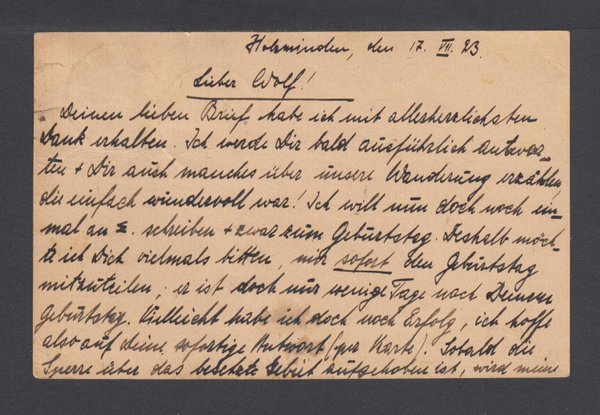 Holzminden, den 17. VII. 23.
Lieber Wolf!
Deinen lieben Brief habe ich mit allerherzlichsten
Dank erhalten. Ich werde Dir bald ausführlich antwor-
ten + Dir auch manches über unsere Wanderung erzählen,
die einfach wundervoll war! Ich will nun doch noch ein-
mal an Σ. schreiben + zwar zum Geburtstag. Deshalb möch-
te ich Dich vielmals bitten, mir sofort den Geburtstag
mitzuteilen; er ist doch nur wenige Tage nach Deinem
Geburtstag. Vielleicht habe ich doch noch Erfolg, ich hoffe
also auf Deine sofortige Antwort (per Karte). Sobald die
Sperre über das besetzte Gebiet aufgehoben ist, wird meine